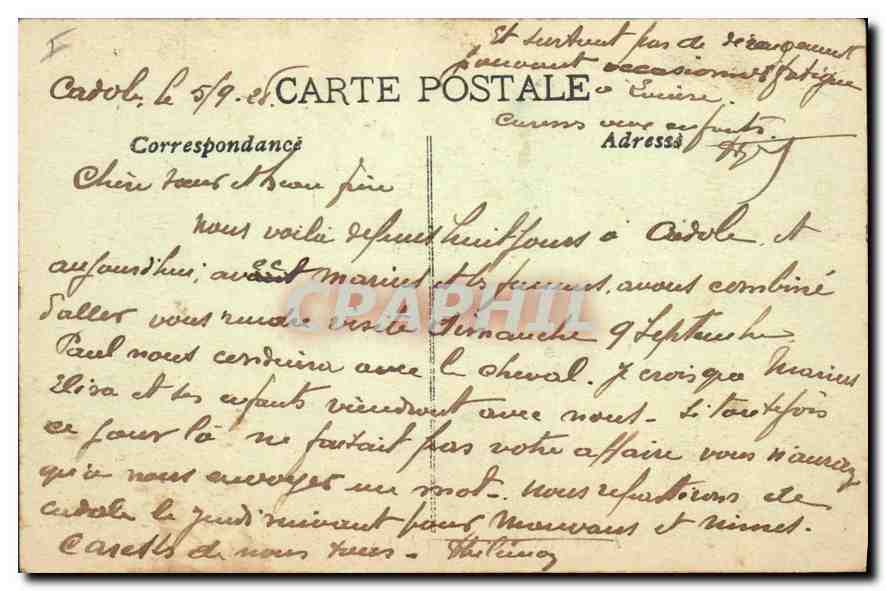 Et surtout pas de dérangement
pouvant occasionner fatigue
à
Caresses aux enfants.
Cadole, le 5/9.28 CARTE POSTALE
Correspondance Adresse
Chère sœur et beau frère
Nous voilà depuis huit jours à Cadole, et
aujourd'hui, avec Marius et les femmes, avons combiné
d'aller vous rendre visite Dimanche 9 Septembre
Paul nous conduira avec le cheval. Je crois que Marius
Elisa et ses enfants viendront avec nous. Si toutefois
ce jour là ne faisait pas votre affaire vous n'aurez
qu'à nous envoyer un mot. Nous repartirons de
Cadole le jeudi suivant pour et Nimes.
Caresses de nous tous.
CPAPHIL